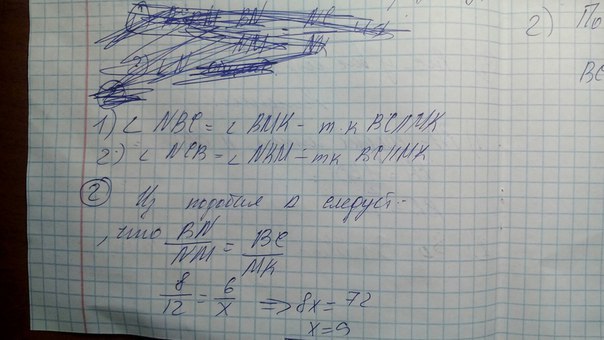 2) По
BC
1) ∠ NBC = ∠ BMK - т.к BC//MK
2) ∠ NCB = ∠ NKM - тк BC//MK
② Из подобия Δ следует
, что BN/NM = BC/MK
8/12 = 6/x => 8x = 72
x = 9